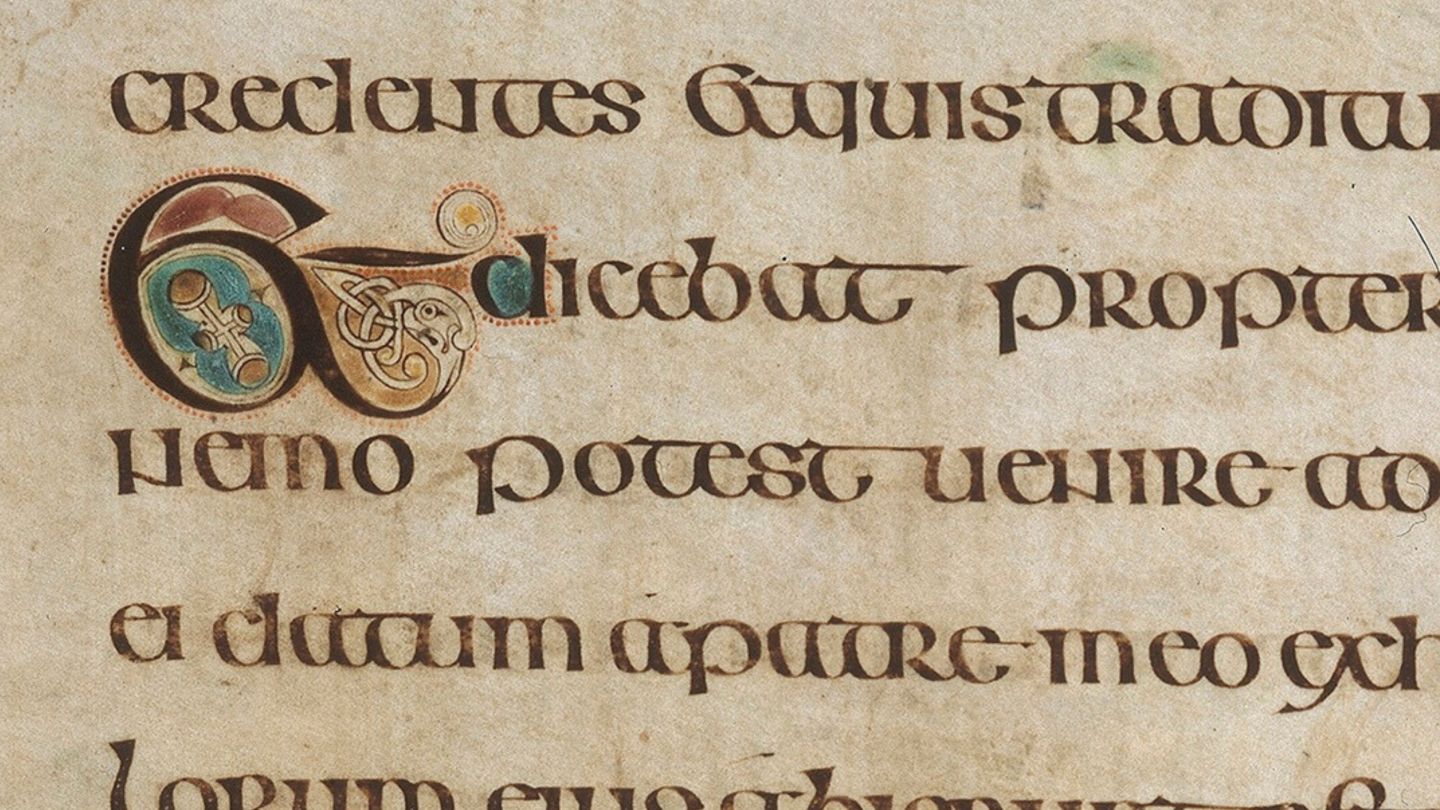 credentes Et quis traditu
Et dicebat propter
nemo potest uenire ad
ei datum a patre meo exh
lorum eius abierunt